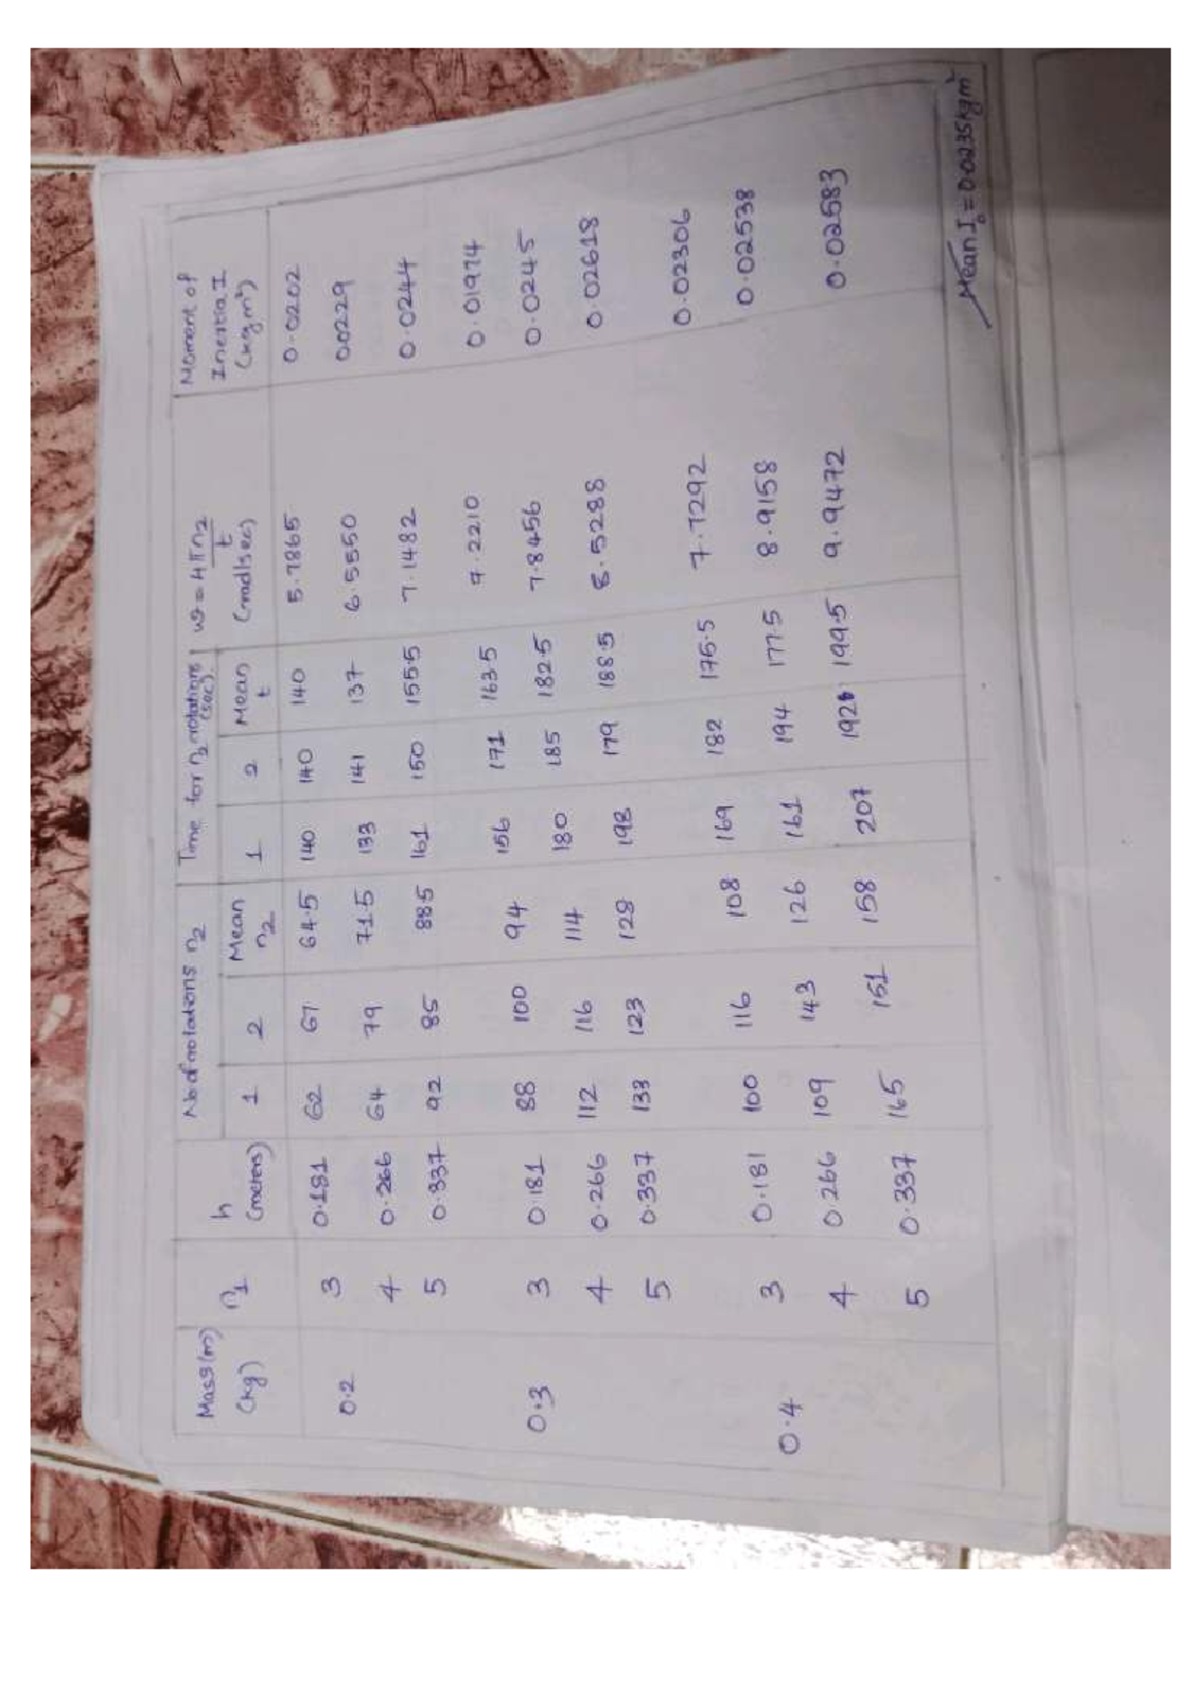 Mass(m) (kg) | n1 | h (meters) | No of rotations n2 | Time for n2 rotations (sec) | ω = 4πn2/t (rad/sec) | Moment of Inertia I (kgm²)
1 | 2 | Mean n2 | 1 | 2 | Mean t
0.2 | 3 | 0.181 | 62 | 67 | 64.5 | 140 | 140 | 140 | 5.7865 | 0.0202
4 | 0.266 | 64 | 79 | 71.5 | 133 | 141 | 137 | 6.5550 | 0.0229
5 | 0.337 | 92 | 85 | 88.5 | 161 | 150 | 155.5 | 7.1482 | 0.0244
0.3 | 3 | 0.181 | 88 | 100 | 94 | 156 | 171 | 163.5 | 7.2210 | 0.01974
4 | 0.266 | 112 | 116 | 114 | 180 | 185 | 182.5 | 7.8456 | 0.0245
5 | 0.337 | 133 | 123 | 128 | 198 | 179 | 188.5 | 8.5288 | 0.02618
0.4 | 3 | 0.181 | 100 | 116 | 108 | 169 | 182 | 175.5 | 7.7292 | 0.02306
4 | 0.266 | 109 | 143 | 126 | 161 | 194 | 177.5 | 8.9158 | 0.02538
5 | 0.337 | 165 | 151 | 158 | 207 | 192 | 199.5 | 9.9472 | 0.02583
Mean I0 = 0.0235 kgm²